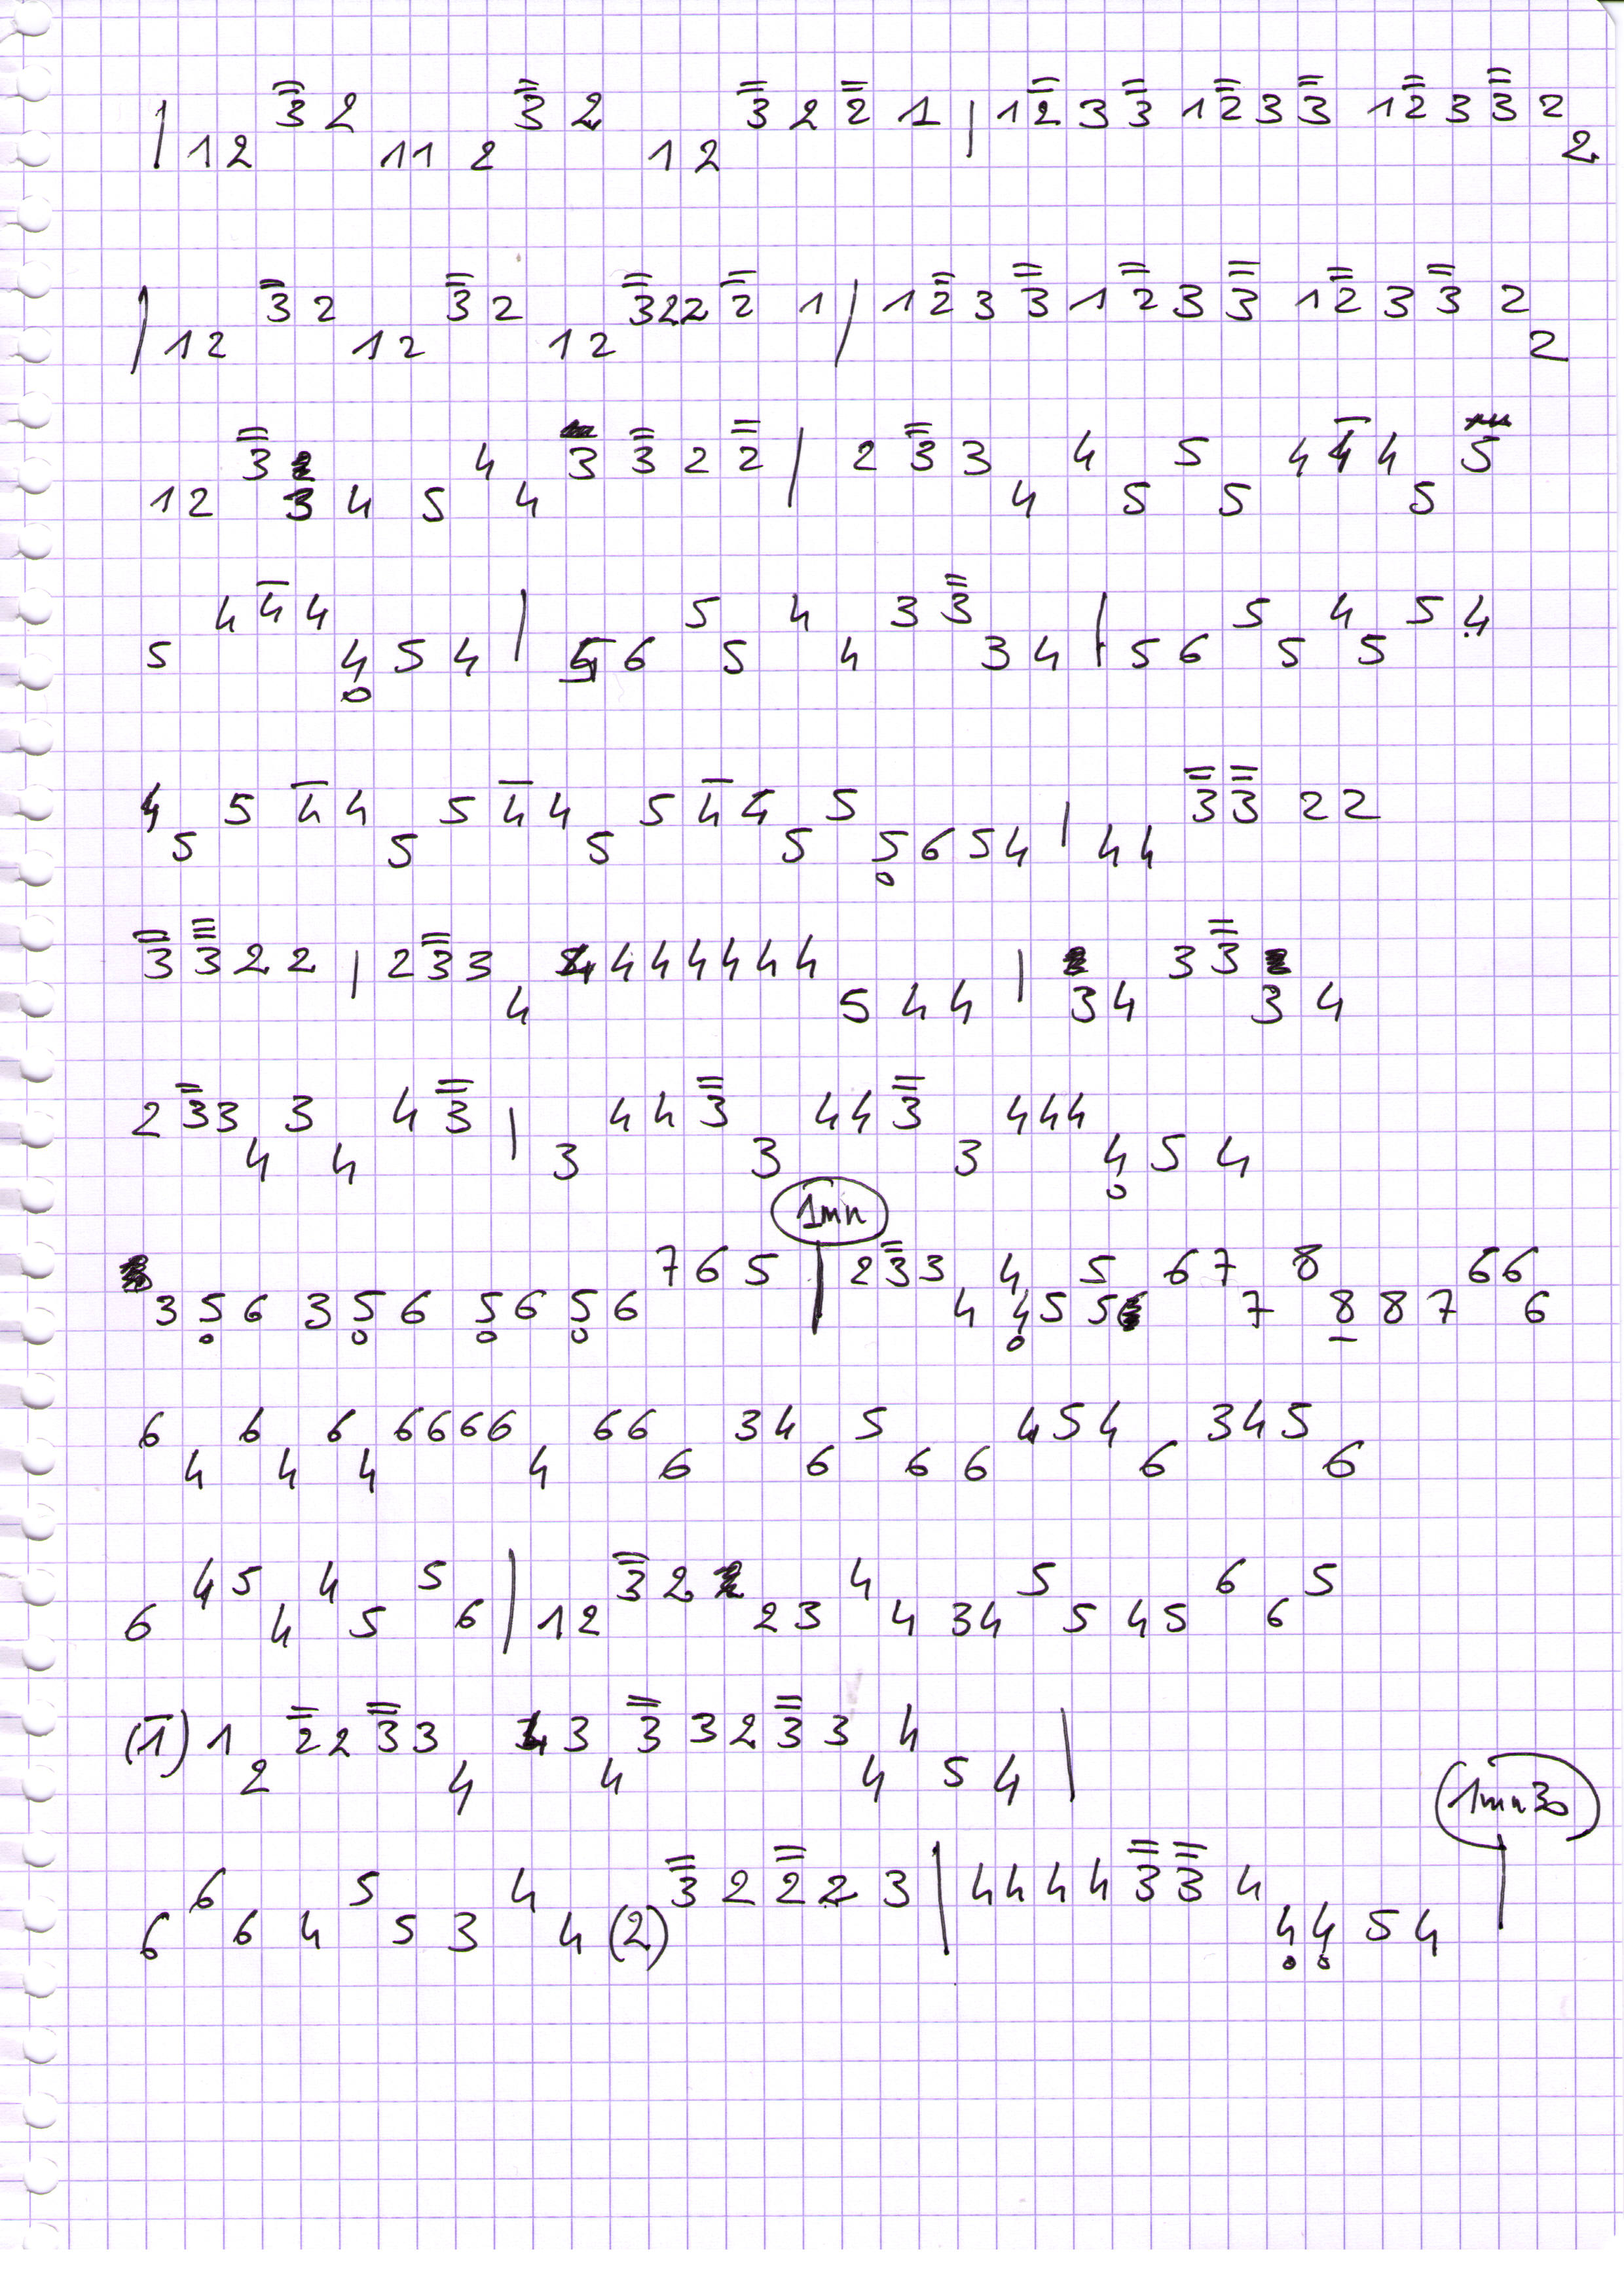 | 1 2 3̿ 2 1 1 2 3̿ 2 1 2 3̿ 2 2̿ 1 | 1 2̿ 3 3̿ 1 2̿ 3 3̿ 1 2̿ 3 3̿ 2 2
| 1 2 3̿ 2 1 2 3̿ 2 1 2 3̿ 2 2 2̿ 1 | 1 2̿ 3 3̿ 1 2̿ 3 3̿ 1 2̿ 3 3̿ 2 2
1 2 3̿ 3 4 5 4 4 3 3̿ 2 2̿ | 2 3̿ 3 4 4 5 5 5 4 4̅ 4 5 5
5 4 4̅ 4 4 5 4 | 5 6 5 5 4 4 3 3̿ 3 4 | 5 6 5 5 4 5 5 4
4 5 5 4̅ 4 5 5 4̅ 4 5 5 4̅ 4 5 5 5 6 5 4 | 4 4 3̿ 3̿ 2 2
3̿ 3̿ 2 2 | 2 3̿ 3 4 4 4 4 4 4 4 4 5 4 4 | 3 4 3 3̿ 3 4
2 3̿ 3 4 3 4 4 3̿ | 3 4 4 3̿ 3 4 4 3̿ 3 4 4 4 4 5 4
1mn
3 5 6 3 5 6 5 6 5 6 7 6 5 | 2 3̿ 3 4 4 4 5 5 5 6 7 7 8 8 8 7 6 6 6
6 4 6 4 6 4 6 6 6 6 4 6 6 6 3 4 6 5 6 6 4 5 4 6 3 4 5 6
6 4 5 4 4 5 5 6 | 1 2 3̿ 2 2 3 4 4 3 4 5 5 4 5 6 6 5
(1̅) 1 2 2̿ 2 3̿ 3 4 4 3 4 3̿ 3 2 3̿ 3 4 4 5 4 |
1mn30
6 6 6 4 5 5 3 4 4 (2) 3̿ 2 2̿ 2 3 | 4 4 4 4 3̿ 3̿ 4 4 4 5 4 |